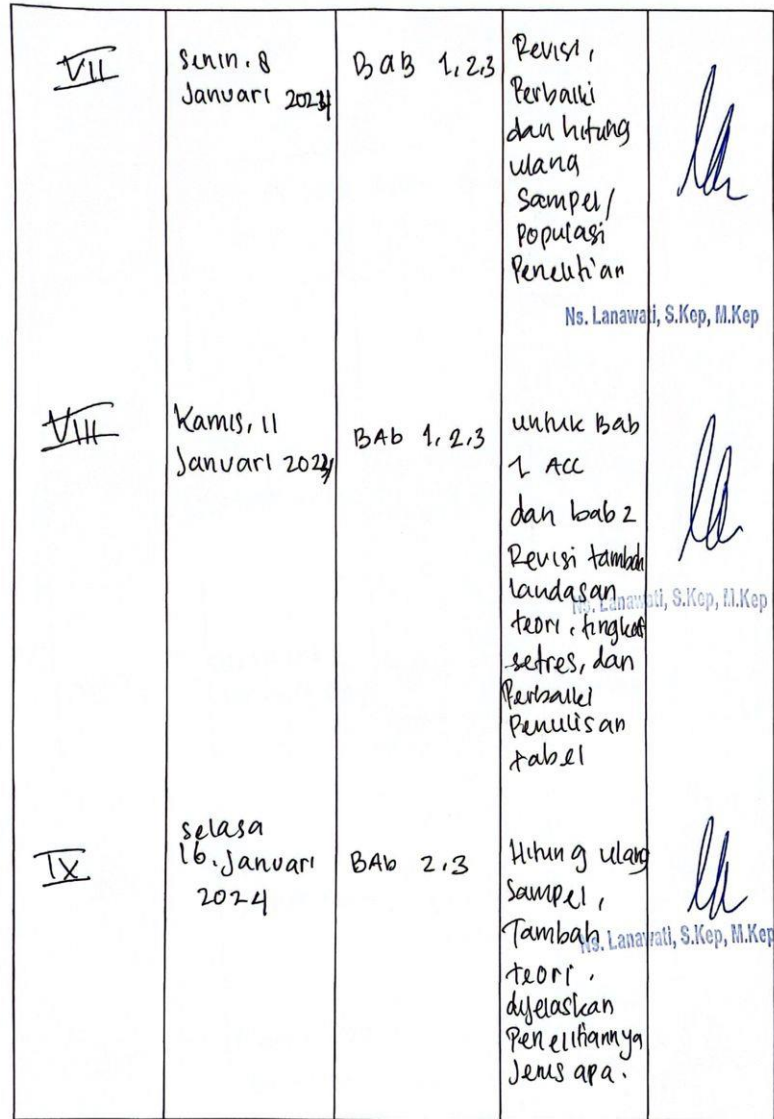 VII
Senin, 8
Januari 2024
BAB 1, 2, 3
Revisi,
Perbaiki
dan hitung
ulang
Sampel/
Populasi
Penelitian
Ns. Lanawati, S.Kep, M.Kep
VIII
Kamis, 11
Januari 2024
BAb 1, 2, 3
untuk Bab
1 ACC
dan bab 2
Revisi tambah
landasan
teori, tingkat
setres, dan
Perbaiki
Penulisan
tabel
Ns. Lanawati, S.Kep, M.Kep
IX
selasa
16. Januari
2024
BAb 2, 3
Hitung ulang
Sampel,
Tambah
teori.
dijelaskan
Penelitiannya
Jenis apa.
Ns. Lanawati, S.Kep, M.Kep